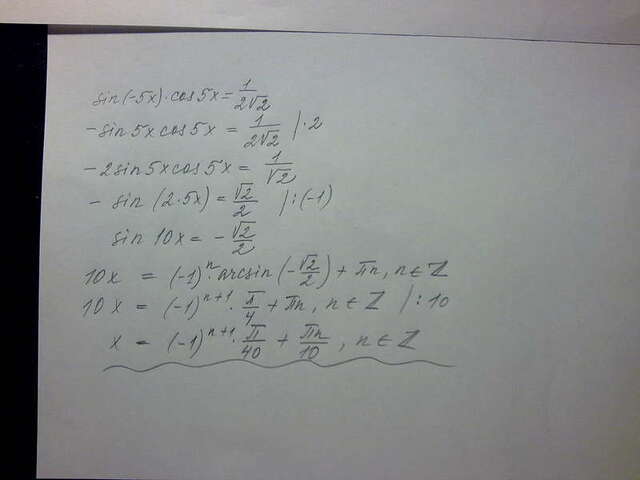 sin(-5x)·cos5x = 1/(2√2)
-sin5xcos5x = 1/(2√2) |·2
-2sin5xcos5x = 1/√2
- sin(2·5x) = √2/2 |:(-1)
sin 10x = -√2/2
10x = (-1)ⁿ·arcsin(-√2/2) + πn, n∈ℤ
10x = (-1)ⁿ⁺¹·π/4 + πn, n∈ℤ |:10
x = (-1)ⁿ⁺¹·π/40 + πn/10, n∈ℤ